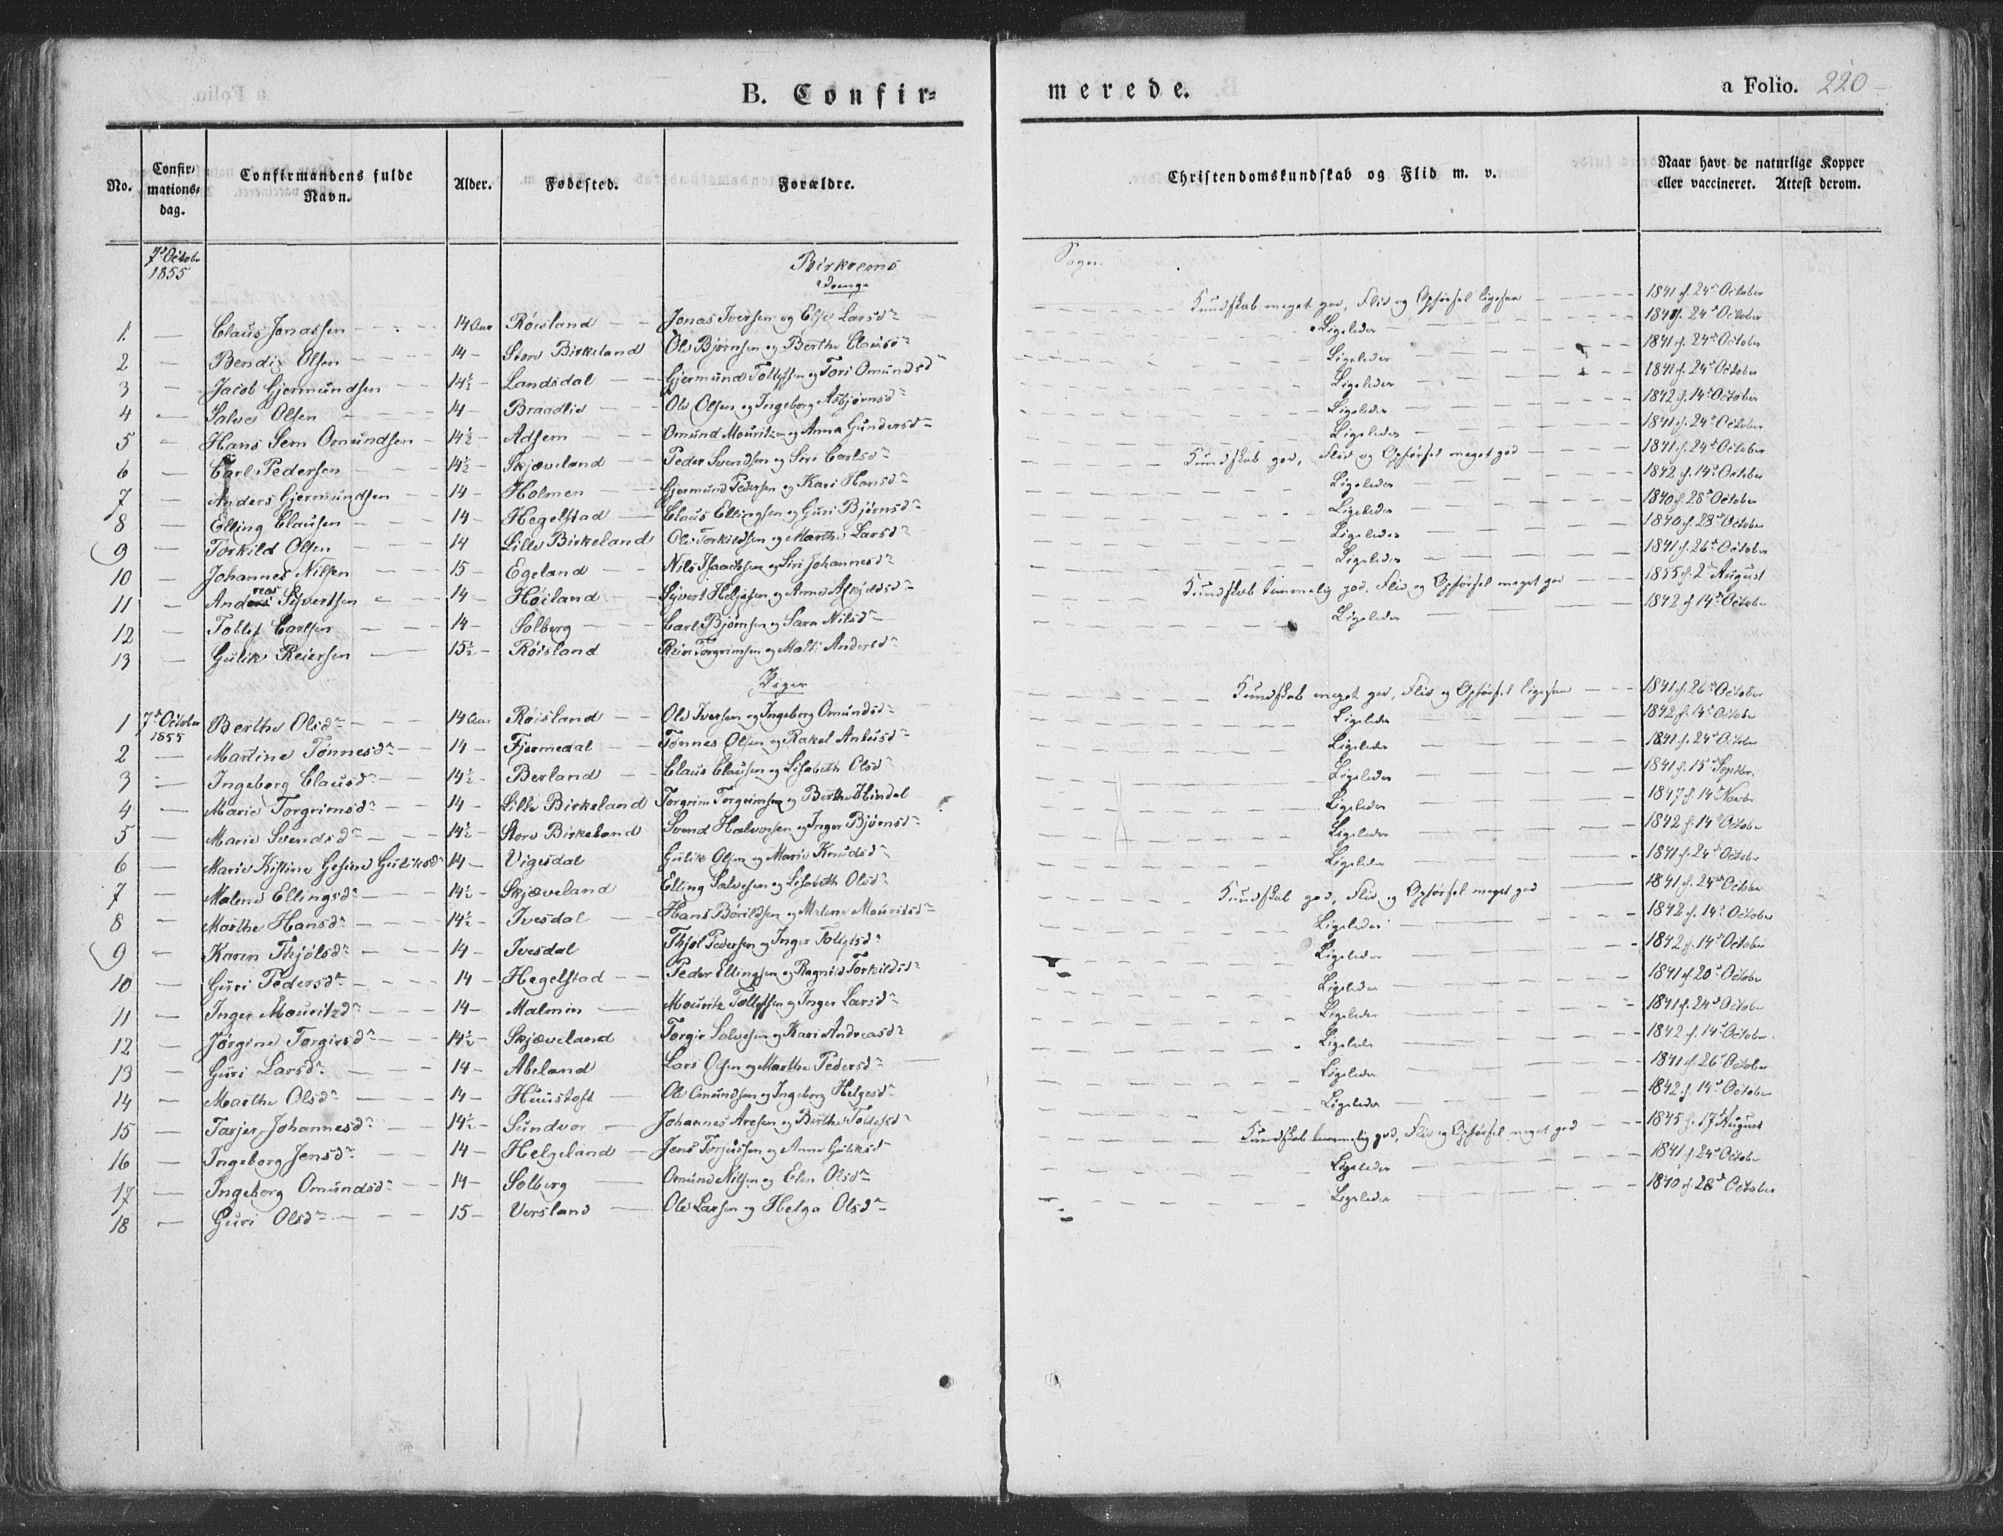 B. Confir= merede. a Folio. 220
No. Confir-mations-dag. Confirmandens fulde Navn. Alder. Fødested. Forældre. Christendomskundskab og Flid m. v. Naar havt de naturlige Kopper eller vaccineret. Attest derom.
7d October 1855 Birkrems Sogn.
Drenge
1. Claus Jonassen 14 Aar Røisland Jonas Iversen og Else Larsdr Kundskab meget god, Flid og Opførsel ligesaa 1841 f. 24d October
2 Bendix Olsen 14 Store Birkeland Ole Bjørnsen og Berthe Clausdr Ligeledes 1841 f. 24d October
3 Jacob Gjermundsen 14½ Landsdal Gjermund Tollefsen og Tori Omundsdr Ligeledes 1841 f. 24d October
4 Salve Olsen 14 Braadlie Ole Olsen og Ingeborg Asbjørnsdr Ligeledes 1841 f. 24d October
5 Hans Sem Omundsen 14½ Adsem Omund Mouritzen og Anna Gundersdr Ligeledes 1842 f. 14d October
6 Carl Pedersen 14½ Skjæveland Peder Svendsen og Siri Carlsdr Ligeledes 1841 f. 24d October
7 Anders Gjermundsen 14 Holmen Gjermund Pedersen og Kari Hansdr Kundskab god, Flid og Opførsel meget god 1841 f. 24d October
8 Elling Clausen 14 Hegelstad Claus Ellingsen og Guri Bjørnsdr Ligeledes 1842 f. 14d October
9 Torkild Olsen 14 Lille Birkeland Ole Torkildsen og Marthe Larsdr Ligeledes 1840 f. 28d October
10 Johannes Nilsen 15 Egeland Nils Isaachsen og Siri Johannesdr Ligeledes 1840 f. 28d October
11 Andreas Sivertsen 14 Høiland Sivert Helgesen og Anne Ligeledes 1841 f. 26d October
12 Tollef Carlsen 14 Solberg Carl Bjørnsen og Sara Nilsdr Kundskab temmelig god, Flid og Opførsel meget god 1855 f. 2d August
13 Gulik Reiersen 15½ Røisland Reier Torgrimsen og Malti Andersdr Ligeledes 1842 f. 14d October
Piger
1 7d October 1855 Berthe Olsdr 14 Aar Røisland Ole Iversen og Ingeborg Omundsdr Kundskab meget god, Flid og Opførsel ligesaa 1841 f. 26d October
2 Martine Tønnesdr 14 Fjermedal Tønnes Olsen og Rakel Ligeledes 1842 f. 14d October
3 Ingeborg Clausdr 14½ Berland Claus Clausen og Lisabeth Olsdr Ligeledes 1841 f. 24d October
4 Marie Torgrimsdr 14 Lille Birkeland Torgrim Torgrimsen og Berthe Hindal Ligeledes 1841 f. 15d Septbr.
5 Marie Svendsdr 14½ Store Birkeland Svend Halvorsen og Inger Bjørnsdr Ligeledes 1847 f. 14d Novbr
6 Marie Kistine Gesine Guliksdr 14 Vigesdal Gulik Olsen og Marie Knudsdr Ligeledes 1842 f. 14d October
7 Malene Ellingsdr 14½ Skjæveland Elling Salvesen og Lisabeth Olsdr Ligeledes 1841 f. 24d October
8 Marthe Hansdr 14½ Ivesdal Hans Børildsen og Malene Mouritsdr Kundskab god, Flid og Opførsel meget god 1841 f. 24d October
9 Karen Thjølsdr 14 Ivesdal Thjøl Pedersen og Inger Tollefsdr Ligeledes 1842 f. 14d October
10 Guri Pedersdr 14 Hegelstad Peder Ellingsen og Ragnild Torkildsdr Ligeledes 1842 f. 14d October
11 Inger Mouritzdr 14 Malmin Mouritz Tollefsen og Inger Larsdr Ligeledes 1841 f. 20d October
12 Jørgine Torgirsdr 14½ Skjæveland Torgir Salvesen og Kari Andreasdr Ligeledes 1841 f. 24d October
13 Guri Larsdr 14 Abeland Lars Olsen og Marthe Pedersdr Ligeledes 1842 f. 14d October
14 Marthe Olsdr 14 Huustoft Ole Omundsen og Ingeborg Helgesdr Ligeledes 1841 f. 26d October
15 Tarjer Johannesdr 14½ Sundvor Johannes Aresen og Berthe Tollefsdr Ligeledes 1842 f. 14d October
16 Ingeborg Jensdr 14 Helgeland Jens Torjussen og Anne Guliksdr Kundskab temmelig god, Flid og Opførsel meget god 1845 f. 17d August
17 Ingeborg Omundsdr 14 Solberg Omund Nilsen og Elen Olsdr Ligeledes 1841 f. 24d October
18 Guri Olsdr 15 Versland Ole Larsen og Helga Olsdr Ligeledes 1840 f. 28d October